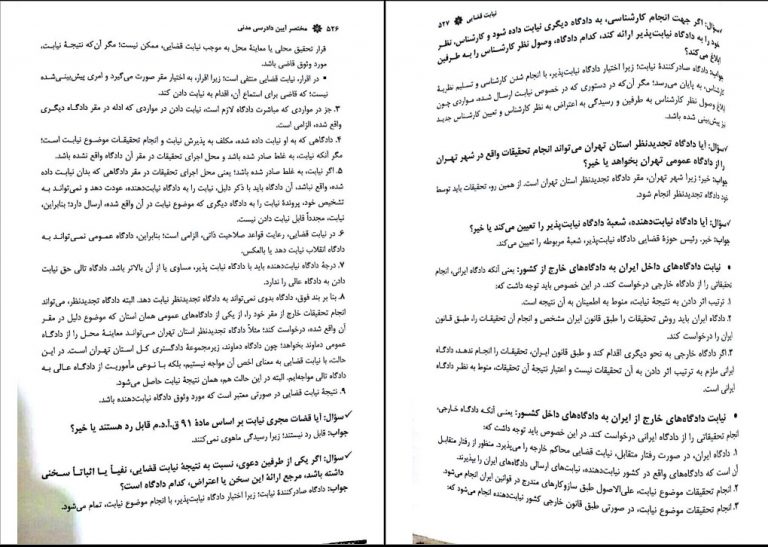 ۵۲۶ مختصر آیین دادرسی مدنی
قرار تحقیق محلی یا معاینهٔ محل به موجب نیابت قضایی، ممکن نیست؛ مگر آن‌که نتیجهٔ نیابت،
مورد وثوق قاضی باشد.
• در اقرار، نیابت قضایی منتفی است؛ زیرا اقرار، به اختیار مقر صورت می‌گیرد و امری پیش‌بینی‌شده
نیست؛ که قاضی برای استماع آن، اقدام به نیابت دادن کند.
۳. جز در مواردی که مباشرت دادگاه لازم است، نیابت دادن در مواردی که ادله در مقر دادگاه دیگری
واقع شده، الزامی است.
۴. دادگاهی که به او نیابت داده شده، مکلف به پذیرش نیابت و انجام تحقیقات موضوع نیابت است؛
مگر آنکه نیابت، به غلط صادر شده باشد و محل اجرای تحقیقات در مقر آن دادگاه واقع نشده باشد.
۵. اگر نیابت، به غلط صادر شده باشد؛ یعنی محل اجرای تحقیقات در مقر دادگاهی که بدان نیابت داده
شده، واقع نباشد، آن دادگاه باید با ذکر دلیل، نیابت را به دادگاه نیابت‌دهنده، عودت دهد و نمی‌تواند به
تشخیص خود، پروندهٔ نیابت را به دادگاه دیگری که موضوع نیابت در آن واقع شده، ارسال دارد؛ بنابراین،
نیابت، مجدداً قابل نیابت دادن نیست.
۶. در نیابت قضایی، رعایت قواعد صلاحیت ذاتی، الزامی است؛ بنابراین، دادگاه عمومی نمی‌تواند به
دادگاه انقلاب نیابت دهد یا بالعکس.
۷. درجهٔ دادگاه نیابت‌دهنده باید با دادگاه نیابت پذیر، مساوی یا از آن بالاتر باشد. دادگاه تالی حق نیابت
دادن به دادگاه عالی را ندارد.
۸. بنا بر بند فوق، دادگاه بدوی نمی‌تواند به دادگاه تجدیدنظر نیابت دهد. البته دادگاه تجدیدنظر، می‌تواند
انجام تحقیقات خارج از مقر خود را، از یکی از دادگاه‌های عمومی همان استان که موضوع دلیل در مقر
آن واقع شده، درخواست کند؛ مثلاً دادگاه تجدیدنظر استان تهران می‌تواند معاینهٔ محل را از دادگاه
عمومی دماوند بخواهد؛ چون دادگاه دماوند، زیرمجموعهٔ دادگستری کل استان تهران است. در این
حالت، با نیابت قضایی به معنای اخص آن مواجه نیستیم، بلکه با نوعی مأموریت از دادگاه عالی به
دادگاه تالی مواجه‌ایم. البته در این حالت هم، همان نتیجهٔ نیابت حاصل می‌شود.
۹. نتیجهٔ نیابت قضایی در صورتی معتبر است که مورد وثوق دادگاه نیابت‌دهنده باشد.
سؤال: آیا قضات مجری نیابت بر اساس مادهٔ ۹۱ ق.آ.د.م قابل رد هستند یا خیر؟
جواب: قابل رد نیستند؛ زیرا رسیدگی ماهوی نمی‌کنند.
سؤال: اگر یکی از طرفین دعوی، نسبت به نتیجهٔ نیابت قضایی، نفیاً یا اثباتاً سخنی
داشته باشد، مرجع ارائهٔ این سخن یا اعتراض، کدام دادگاه است؟
جواب: دادگاه صادرکنندهٔ نیابت؛ زیرا اختیار دادگاه نیابت‌پذیر، با انجام موضوع نیابت، تمام می‌شود.
نیابت قضایی ۵۲۷
سؤال: اگر جهت انجام کارشناسی، به دادگاه دیگری نیابت داده شود و کارشناس، نظر
خود را به دادگاه نیابت‌پذیر ارائه کند، کدام دادگاه، وصول نظر کارشناس را به طرفین
ابلاغ می‌کند؟
جواب: دادگاه صادرکنندهٔ نیابت؛ زیرا اختیار دادگاه نیابت‌پذیر، با انجام شدن کارشناسی و تسلیم نظریهٔ
کارشناس، به پایان می‌رسد؛ مگر آن‌که در دستوری که در خصوص نیابت ارسال شده، مواردی چون
ابلاغ وصول نظر کارشناس به طرفین و رسیدگی به اعتراض به نظر کارشناس و تعیین کارشناس جدید
نیز پیش‌بینی شده باشد.
سؤال: آیا دادگاه تجدیدنظر استان تهران می‌تواند انجام تحقیقات واقع در شهر تهران
را از دادگاه عمومی تهران بخواهد یا خیر؟
جواب: خیر؛ زیرا شهر تهران، مقر دادگاه تجدیدنظر استان تهران است. از همین رو، تحقیقات باید توسط
خود دادگاه تجدیدنظر انجام شود.
سؤال: آیا دادگاه نیابت‌دهنده، شعبهٔ دادگاه نیابت‌پذیر را تعیین می‌کند یا خیر؟
جواب: خیر، رئیس حوزهٔ قضایی دادگاه نیابت‌پذیر، شعبهٔ مربوطه را تعیین می‌کند.
• نیابت دادگاه‌های داخل ایران به دادگاه‌های خارج از کشور: یعنی آنکه دادگاه ایرانی، انجام
تحقیقاتی را از دادگاه خارجی درخواست کند. در این خصوص باید توجه داشت که:
۱. ترتیب اثر دادن به نتیجهٔ نیابت، منوط به اطمینان به آن نتیجه است.
۲. دادگاه ایران باید روش تحقیقات را طبق قانون ایران مشخص و انجام آن تحقیقات را، طبق قانون
ایران را درخواست کند.
۳. اگر دادگاه خارجی به نحو دیگری اقدام کند و طبق قانون ایران، تحقیقات را انجام ندهد، دادگاه
ایرانی ملزم به ترتیب اثر دادن به آن تحقیقات نیست و اعتبار نتیجهٔ آن تحقیقات، منوط به نظر دادگاه
ایرانی است.
• نیابت دادگاه‌های خارج از ایران به دادگاه‌های داخل کشور: یعنی آنکه دادگاه خارجی،
انجام تحقیقاتی را از دادگاه ایرانی درخواست کند. در این خصوص باید توجه داشت که:
۱. دادگاه ایران، در صورت رفتار متقابل، نیابت قضایی محاکم خارجه را می‌پذیرد. منظور از رفتار متقابل
آن است که دادگاه‌های واقع در کشور نیابت‌دهنده، نیابت‌های ارسالی دادگاه‌های ایران را بپذیرند.
۲. انجام تحقیقات موضوع نیابت، علی‌الاصول طبق سازوکارهای مندرج در قوانین ایران انجام می‌شود.
۳. انجام تحقیقات موضوع نیابت، در صورتی طبق قانون خارجی کشور نیابت‌دهنده انجام می‌شود که: